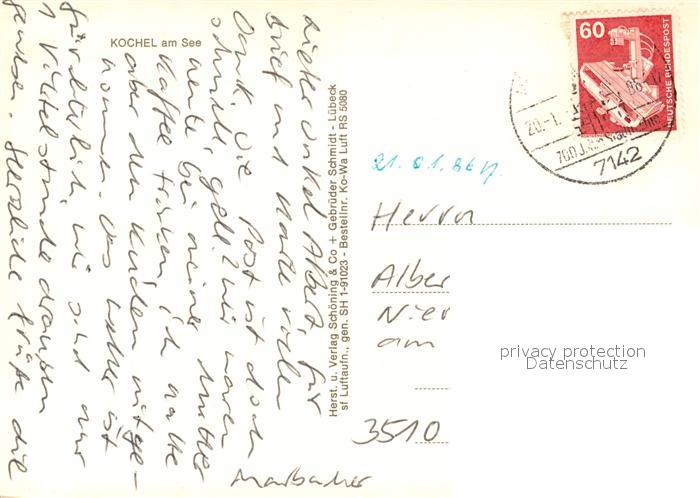 KOCHEL am See
Lieber Onkel Albert, für
Brief und Karte vielen
Dank. Die Post ist doch
schnell, gell? Wir waren
heute bei meiner Mutter
Kaffee trinken, ich hatte
aber den Kuchen mitge-
nommen. Das Wetter ist
fürchterlich, wir sind nur
1 Viertelstunde draußen
gewesen. Herzliche Grüße die
Marbacher
Herst. u. Verlag Schöning & Co + Gebrüder Schmidt - Lübeck
sf Luftaufn., gen. SH 1-91023 - Bestellnr. Ko-Wa Luft RS 5080
60
DEUTSCHE BUNDESPOST
20.-1.
86
700 J.
7142
21.01.86
Herrn
Alber
Nier
am
3510
privacy protection
Datenschutz